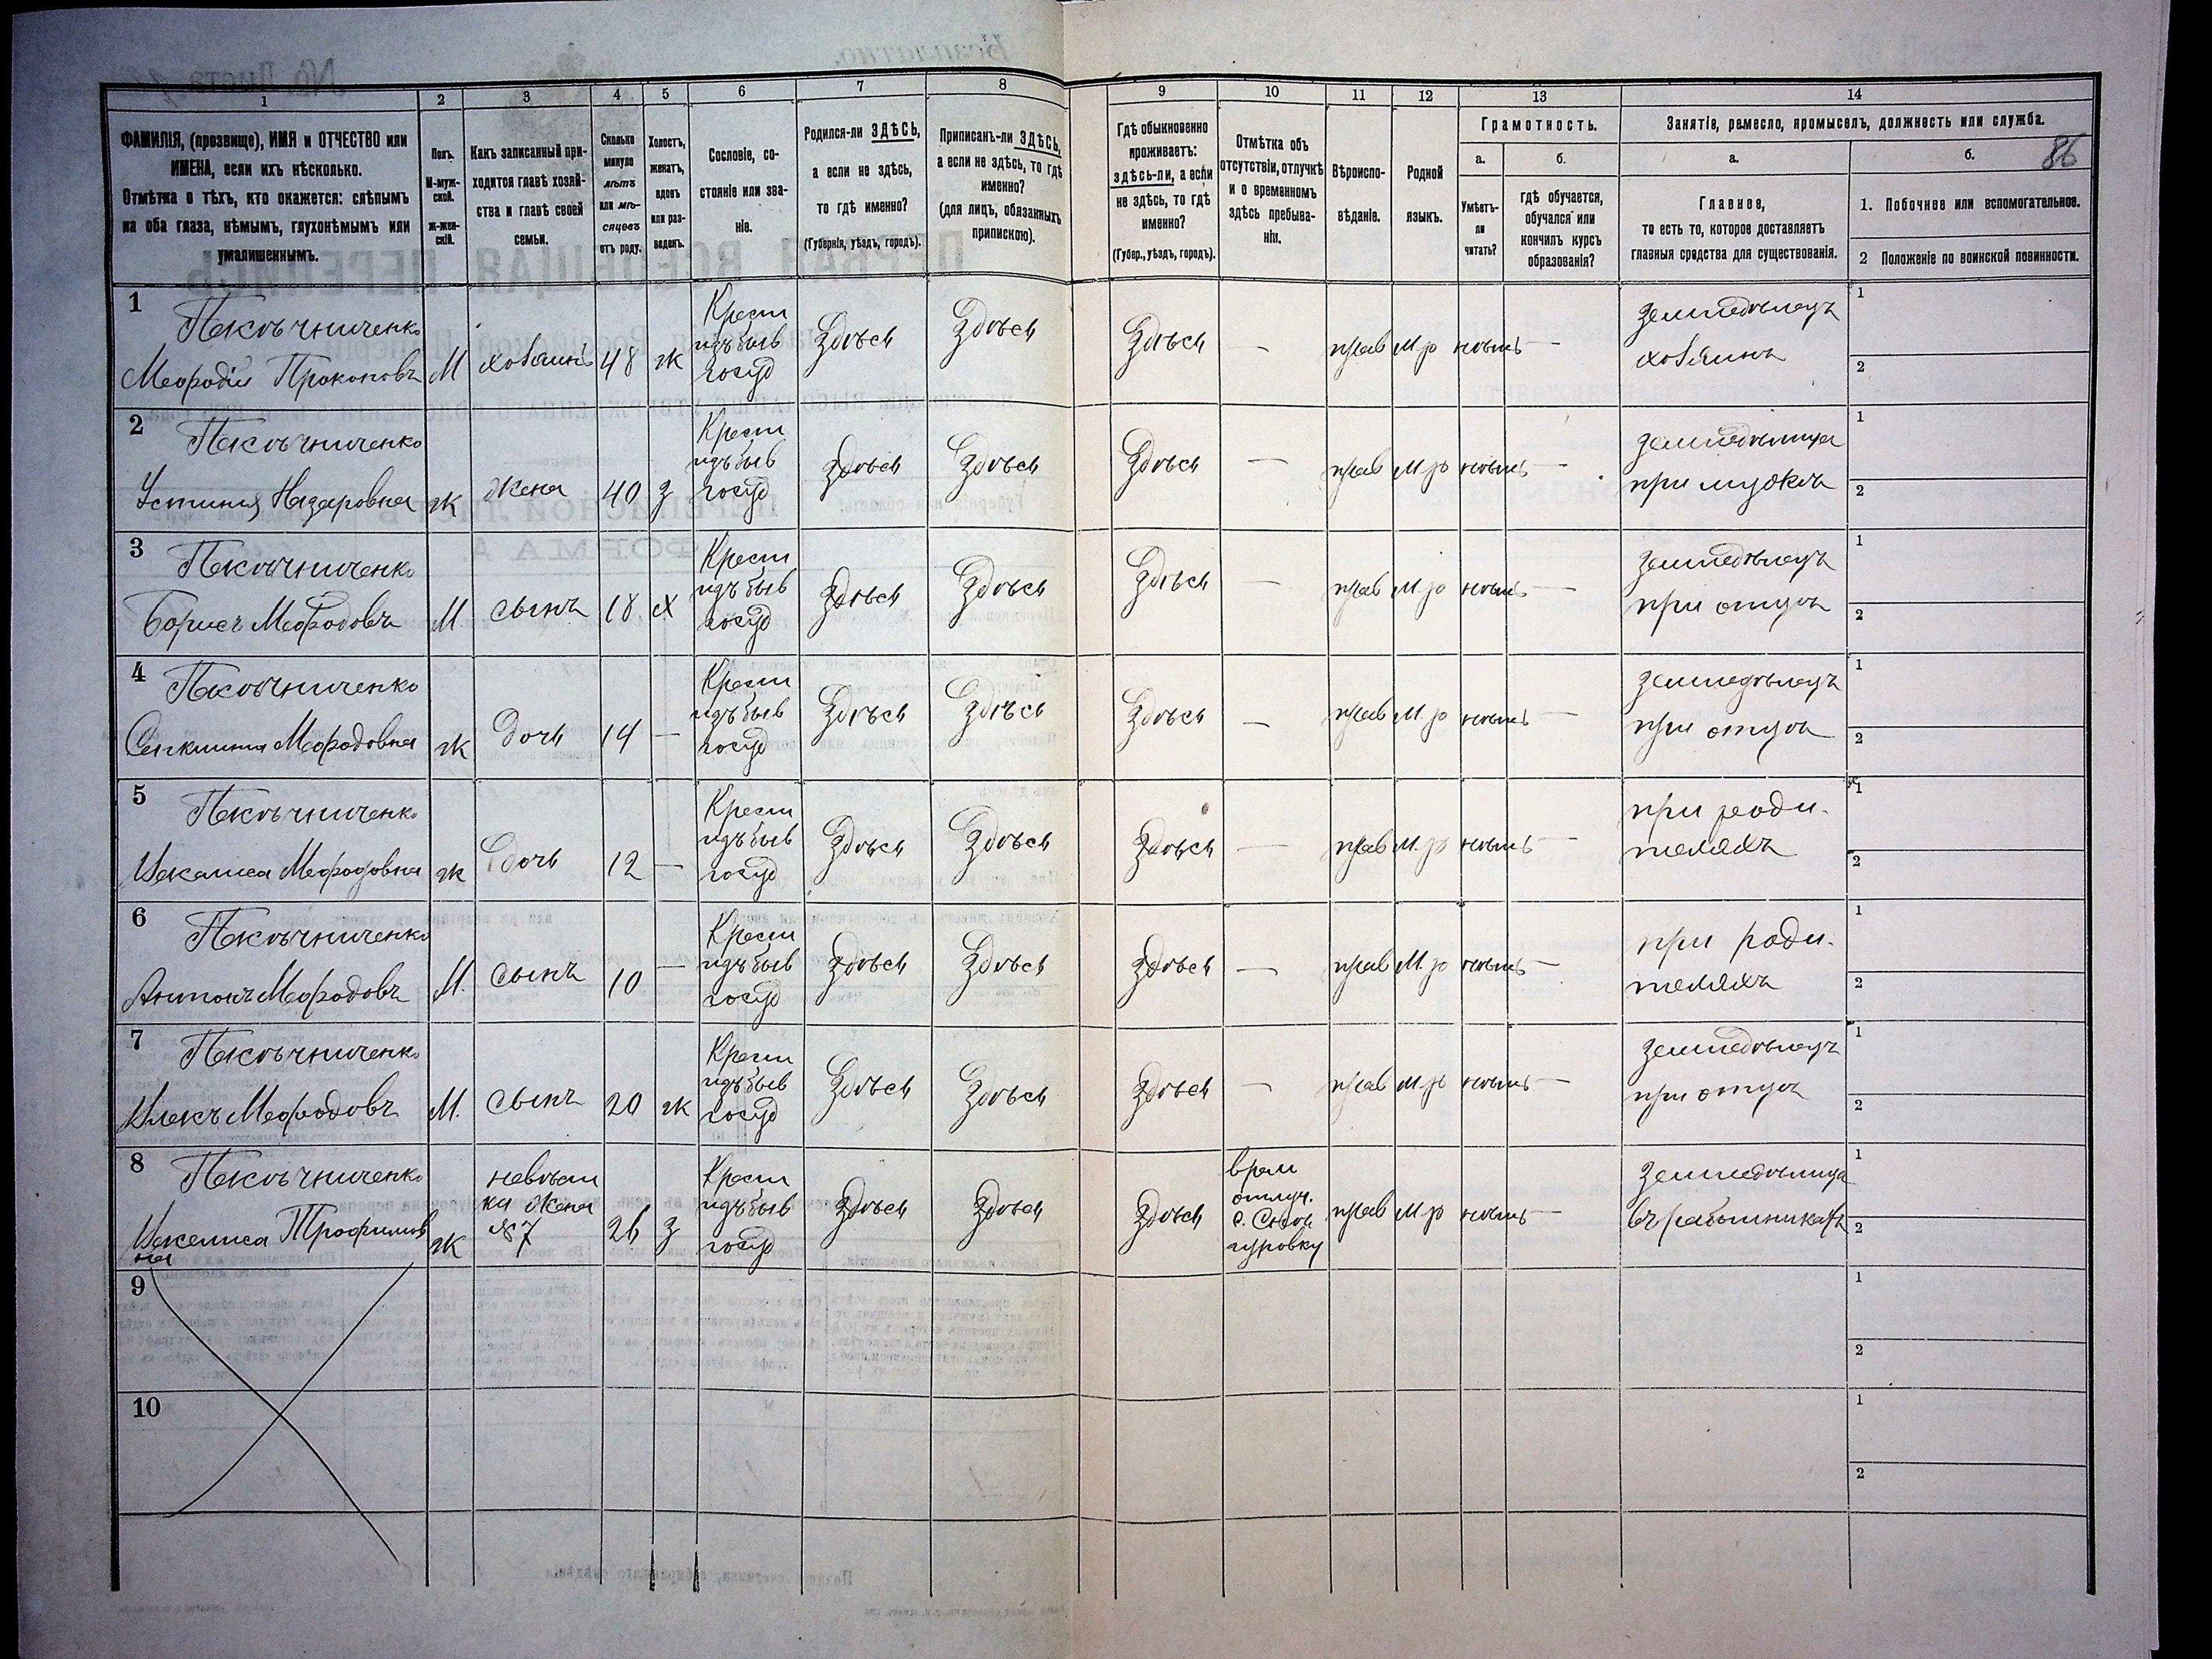 1 2 3 4 5 6 7 8 9 10 11 12 13 14
86
ФАМИЛІЯ, (прозвище), ИМЯ и ОТЧЕСТВО или
ИМЕНА, если ихъ нѣсколько.
Отмѣтка о тѣхъ, кто окажется: слѣпымъ
на оба глаза, нѣмымъ, глухонѣмымъ или
умалишеннымъ.
Полъ.
М-муж-
ской.
ж-жен-
скій.
Какъ записанный при-
ходится главѣ хозяй-
ства и главѣ своей
семьи.
Сколько
минуло
лѣтъ
или мѣ-
сяцевъ
отъ роду.
Холостъ,
женатъ,
вдовъ
или раз-
веденъ.
Сословіе, со-
стояніе или зва-
ніе.
Родился-ли ЗДѢСЬ,
а если не здѣсь,
то гдѣ именно?
(Губернія, уѣздъ, городъ).
Приписанъ-ли ЗДѢСЬ,
а если не здѣсь, то гдѣ
именно?
(для лицъ, обязанныхъ
припискою).
Гдѣ обыкновенно
проживаетъ:
здѣсь-ли, а если
не здѣсь, то гдѣ
именно?
(Губер., уѣздъ, городъ).
Отмѣтка объ
отсутствіи, отлучкѣ
и о временномъ
здѣсь пребыва-
ніи.
Вѣроиспо-
вѣданіе.
Родной
языкъ.
Грамотность.
а.
Умѣетъ-
ли
читать?
б.
гдѣ обучается,
обучался или
кончилъ курсъ
образованія?
Занятіе, ремесло, промыселъ, должность или служба.
а.
Главное,
то есть то, которое доставляетъ
главныя средства для существованія.
б.
1. Побочное или вспомогательное.
2 Положеніе по воинской повинности.
1
Меѳодій Прокоповъ М хозяинъ 48 ж
Крест
изъ быв
госуд
Здѣсь Здѣсь Здѣсь — прав М. р нѣтъ —
земледѣлецъ
хозяинъ
1
2
2
Устинія Назаровна ж жена 40 з
Крест
изъ быв
госуд
Здѣсь Здѣсь Здѣсь — прав М. р нѣтъ —
земледѣлица
при мужѣ
1
2
3
Борисъ Меѳодовъ М. сынъ 18 х
Крест
изъ быв
госуд
Здѣсь Здѣсь Здѣсь — прав М. р нѣтъ —
земледѣлецъ
при отцѣ
1
2
4
Меѳодовна ж дочь 14 —
Крест
изъ быв
госуд
Здѣсь Здѣсь Здѣсь — прав М. р нѣтъ —
земледѣлецъ
при отцѣ
1
2
5
Меѳодовна ж дочь 12 —
Крест
изъ быв
госуд
Здѣсь Здѣсь Здѣсь — прав М. р нѣтъ —
при роди-
теляхъ
1
2
6
Антонъ Меѳодовъ М. сынъ 10 —
Крест
изъ быв
госуд
Здѣсь Здѣсь Здѣсь — прав М. р нѣтъ —
при роди-
теляхъ
1
2
7
Меѳодовъ М. сынъ 20 ж
Крест
изъ быв
госуд
Здѣсь Здѣсь Здѣсь — прав М. р нѣтъ —
земледѣлецъ
при отцѣ
1
2
8
Трофимов
на
ж
невѣст
ка жена
№ 7
26 з
Крест
изъ быв
госуд
Здѣсь Здѣсь Здѣсь
врем
отлуч.
прав М. р нѣтъ —
земледѣлица
въ работникахъ
1
2
9
1
2
10
1
2